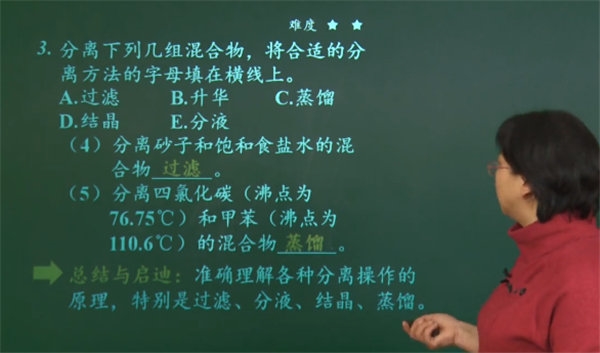 难度 ★ ★
3. 分离下列几组混合物，将合适的分
离方法的字母填在横线上。
A.过滤 B.升华 C.蒸馏
D.结晶 E.分液
（4）分离砂子和饱和食盐水的混
合物 过滤 。
（5）分离四氯化碳（沸点为
76.75℃）和甲苯（沸点为
110.6℃）的混合物 蒸馏 。
总结与启迪：准确理解各种分离操作的
原理，特别是过滤、分液、结晶、蒸馏。